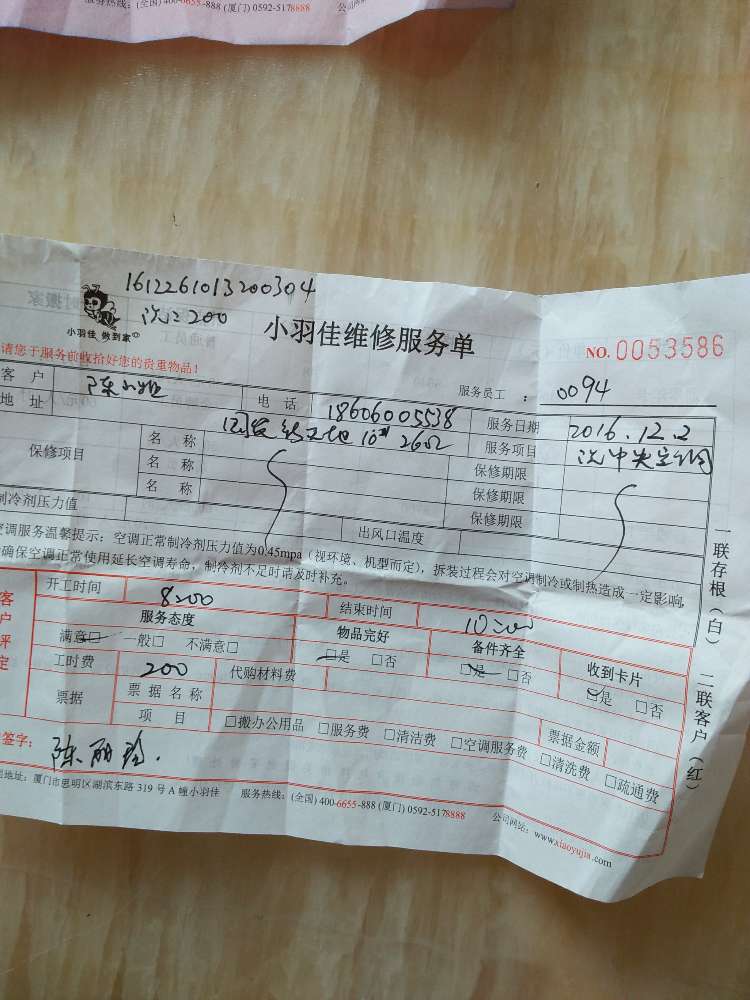 服务热线：(全国) 400-6655-888 (厦门) 0592-5178888
1612261013200304
洗江200
小羽佳 做到家
小羽佳维修服务单
NO. 0053586
请您于服务前收拾好您的贵重物品！
服务员工：0094
客户 陈小姐 电话 18606005538 服务日期 2016.12.2
地址 10 2602 服务项目 洗中央空调
保修项目 名称 保修期限
名称 保修期限
名称 保修期限
制冷剂压力值 出风口温度
空调服务温馨提示：空调正常制冷剂压力值为0.45mpa（视环境、机型而定），拆装过程会对空调制冷或制热造成一定影响,
确保空调正常使用延长空调寿命，制冷剂不足时请及时补充。
开工时间 8:00 结束时间 10:00
客户评定
服务态度 物品完好 备件齐全 收到卡片
满意□ 一般□ 不满意□ □是 □否 □是 □否 □是 □否
工时费 200 代购材料费
票据 票据名称 票据金额
项目 □搬办公用品 □服务费 □清洁费 □空调服务费 □清洗费 □疏通费
签字：陈丽玲.
地址：厦门市思明区湖滨东路 319 号 A 幢小羽佳 服务热线：(全国) 400-6655-888 (厦门) 0592-5178888 公司网站：www.xiaoyujia.com
一联存根（白） 二联客户（红）